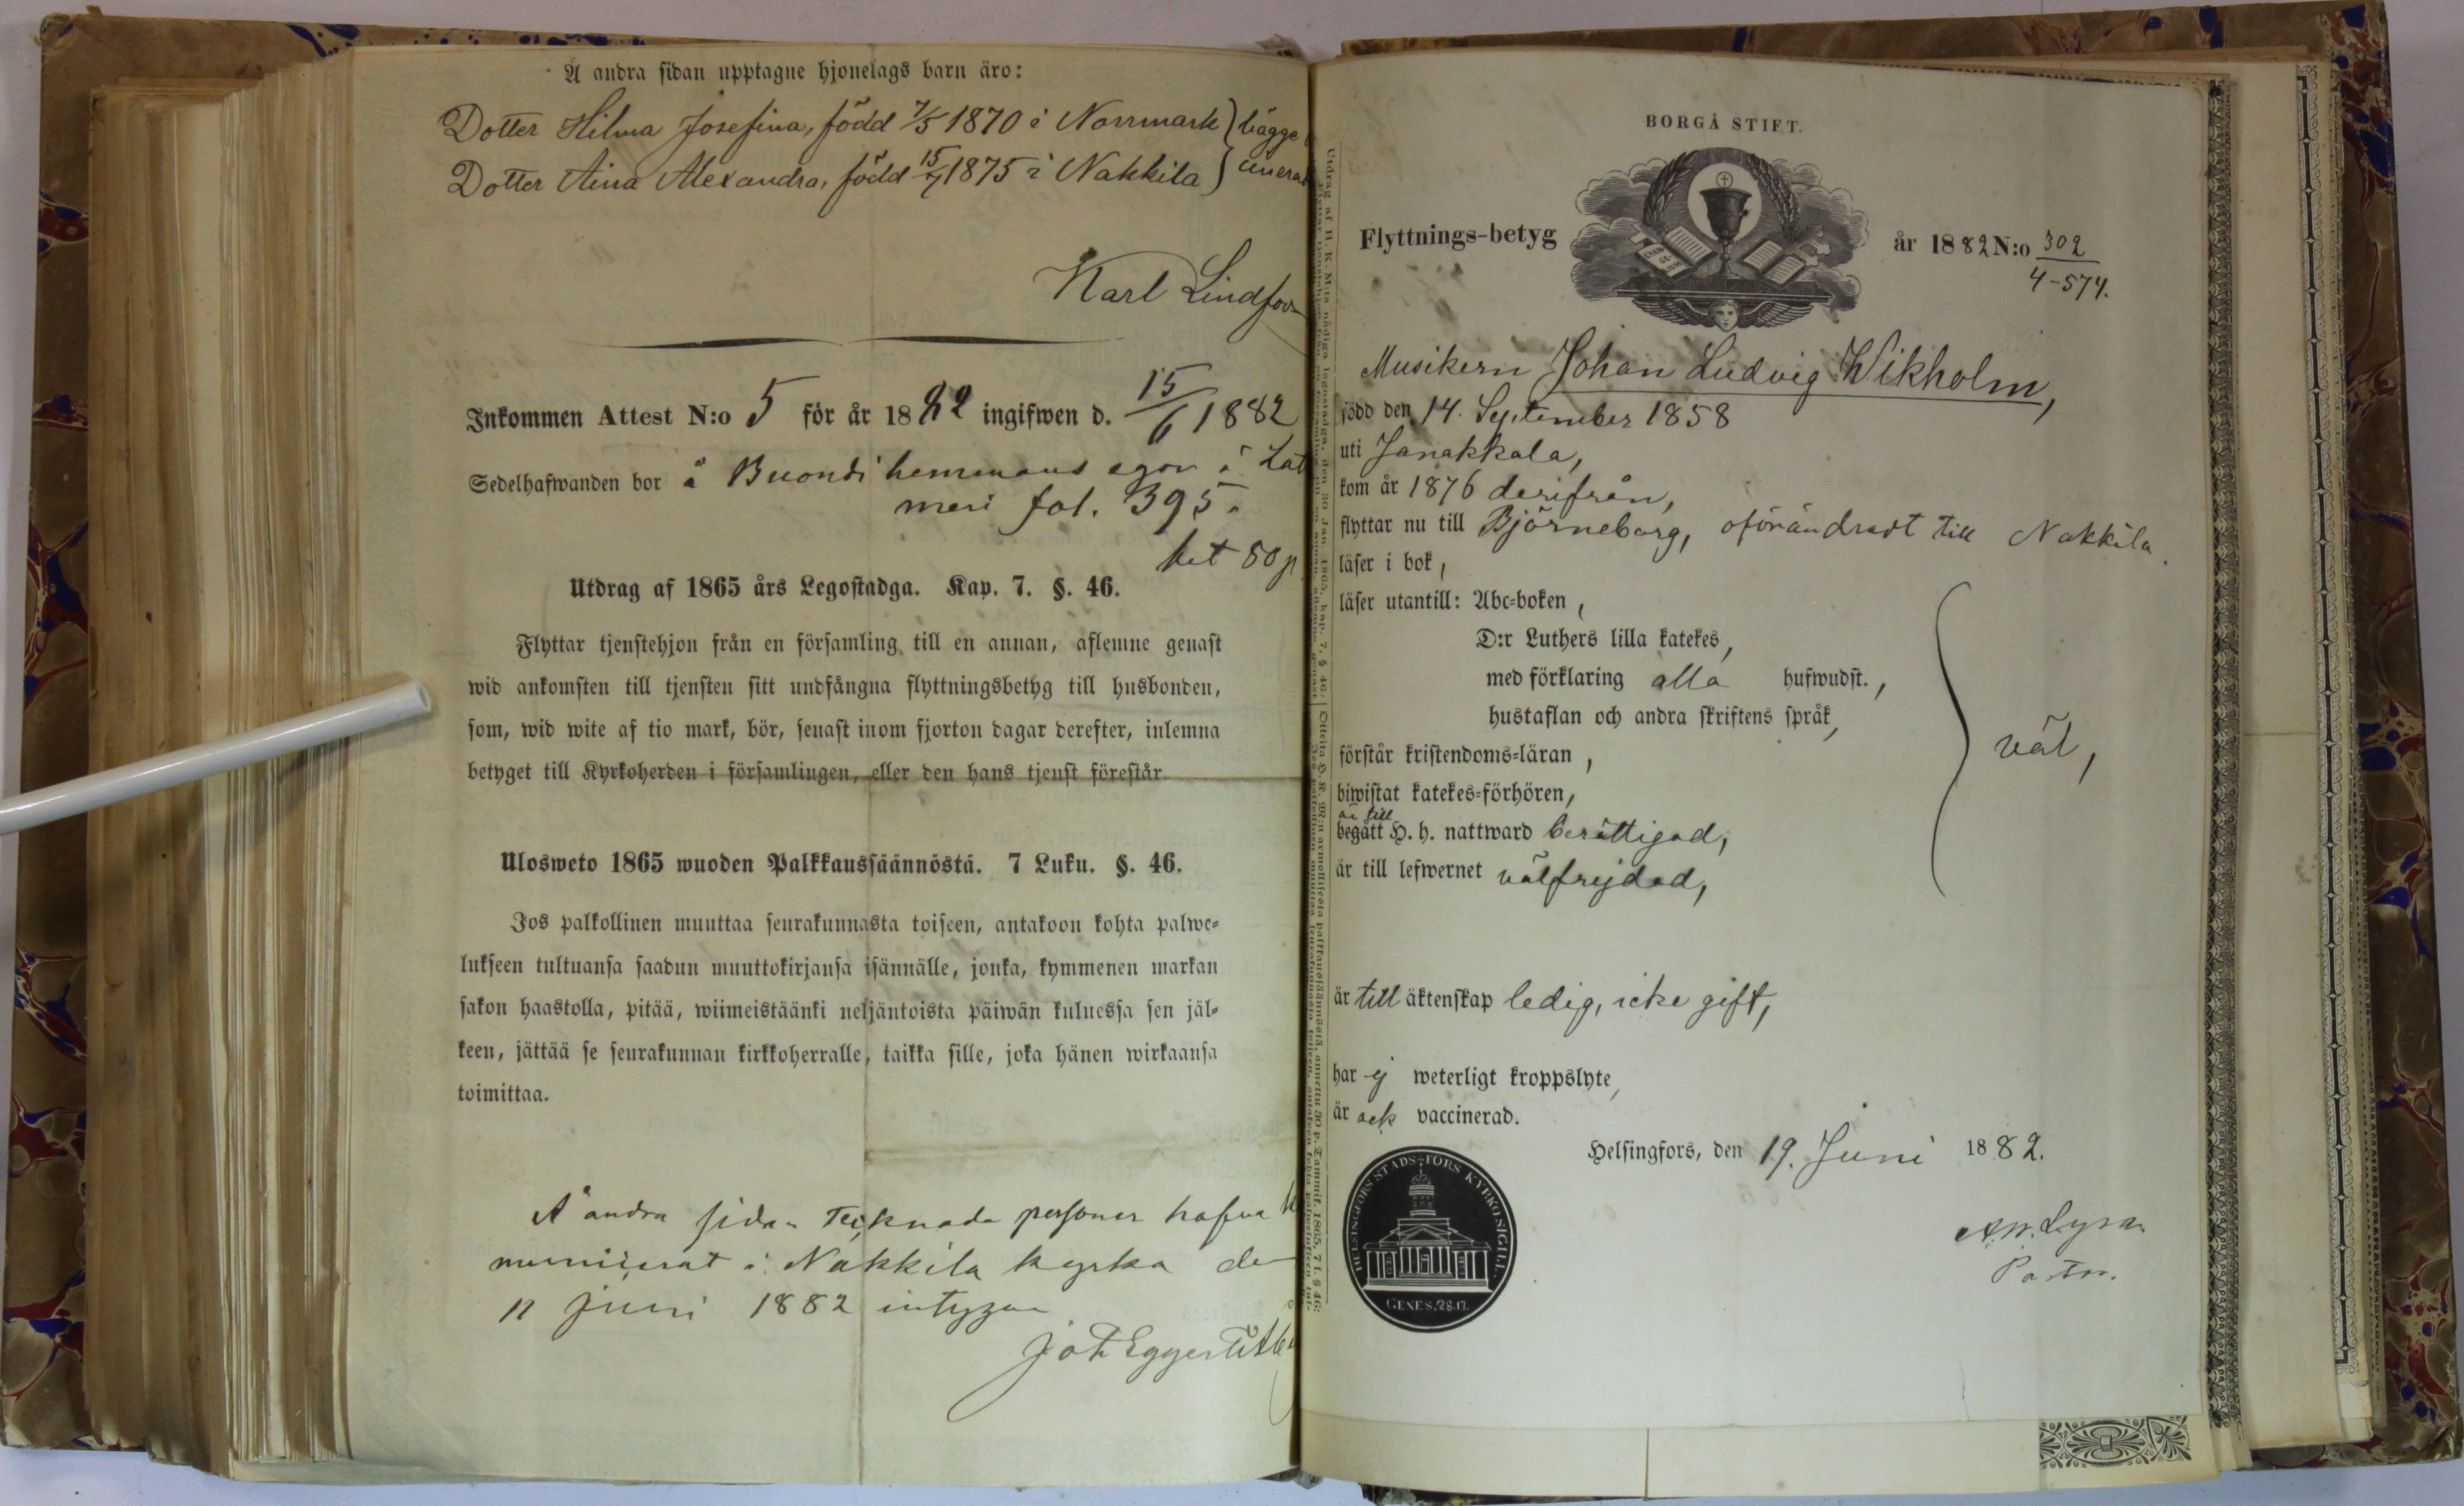 Å andra sidan upptagne hjonelags barn äro:
Dotter Hilma Josefina, född 7/5 1870 i Norrmark } bägge
Dotter Aina Alexandra, född 15/7 1875 i Nakkila }
Karl Lindfors
Inkommen Attest N:o 5 för år 1882 ingifwen d. 15/6 1882
Sedelhafwanden bor å Buondi hemmans egor i Lat
meri fol. 395.
bet 50 p
Utdrag af 1865 års Legostadga. Kap. 7. §. 46.
Flyttar tjenstehjon från en församling till en annan, aflemne genast
wid ankomsten till tjensten sitt undfångna flyttningsbetyg till husbonden,
som, wid wite af tio mark, bör, senast inom fjorton dagar derefter, inlemna
betyget till Kyrkoherden i församlingen, eller den hans tjenst förestår
Ulosweto 1865 wuoden Palkkaussäännöstä. 7 Luku. §. 46.
Jos palkollinen muuttaa seurakunnasta toiseen, antakoon kohta palwe-
lukseen tultuansa saadun muuttokirjansa isännälle, jonka, kymmenen markan
sakon haastolla, pitää, wiimeistäänki neljäntoista päiwän kuluessa sen jäl-
keen, jättää se seurakunnan kirkkoherralle, taikka sille, joka hänen wirkaansa
toimittaa.
Å andra sidan Tecknade personer hafva
municerat i Nakkila kyrka den
11 juni 1882 intygar
BORGÅ STIFT.
Flyttnings-betyg år 1882 N:o 302
4-574.
Musikern Johan Ludvig Wikholm,
född den 14. September 1858
uti Janakkala,
kom år 1876 derifrån,
flyttar nu till Björneborg, oförändradt till Nakkila.
läser i bok,
läser utantill: Abc-boken,
D:r Luthers lilla katekes,
med förklaring alla hufwudst.,
hustaflan och andra skriftens språk,
väl,
förstår kristendoms-läran,
biwistat katekes-förhören,
är till
begått H. h. nattward berättigad,
är till lefwernet välfrejdad,
är till äktenskap ledig, icke gift,
har ej weterligt kroppslyte,
är ock vaccinerad.
Helsingfors, den 19. Juni 1882.
Pastor.
HELSINGFORS STADS-FÖRS KYRKO SIGILL.
GENES. 28.17.